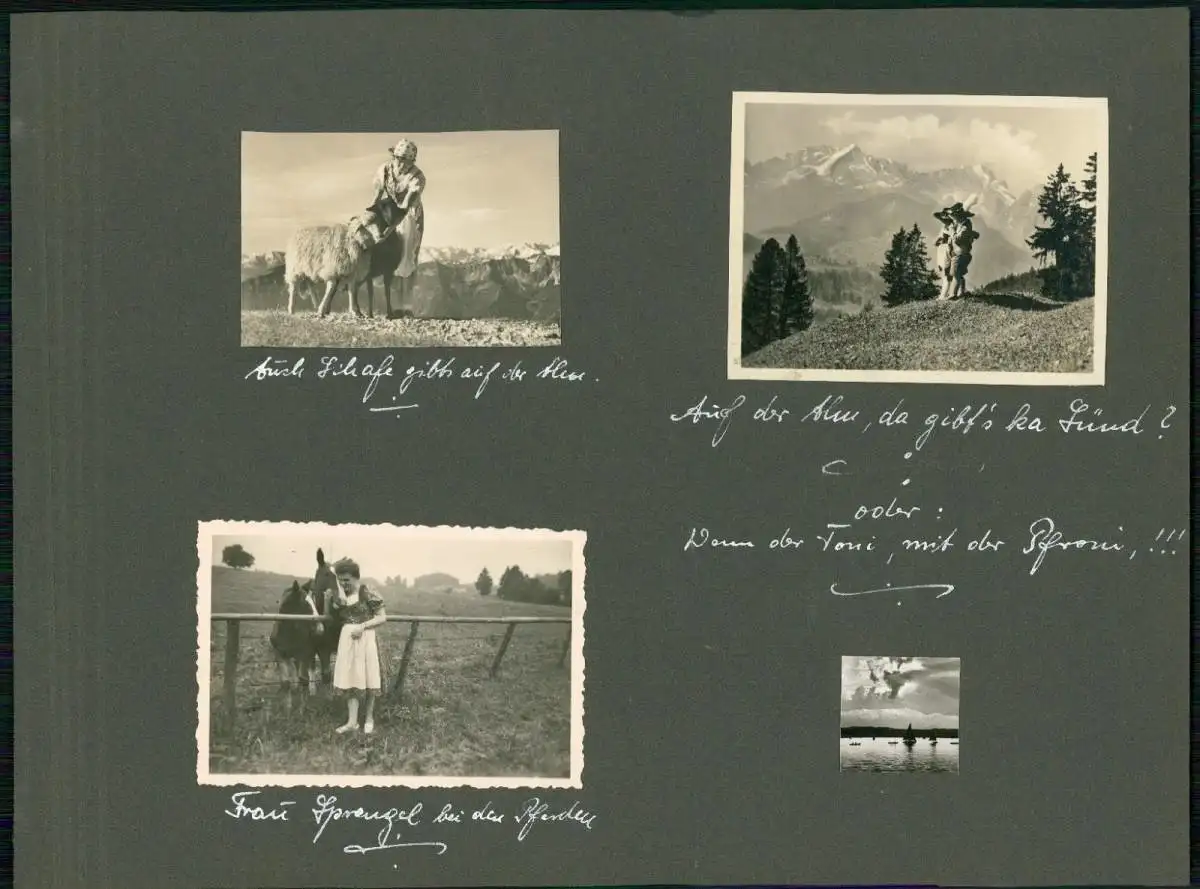 Auch Schafe gibts auf der Alm.
Auf der Alm, da gibt's ka Sünd?
oder:
Wenn der Toni, mit der Vroni, !!!
Frau Sprengel bei den Pferden